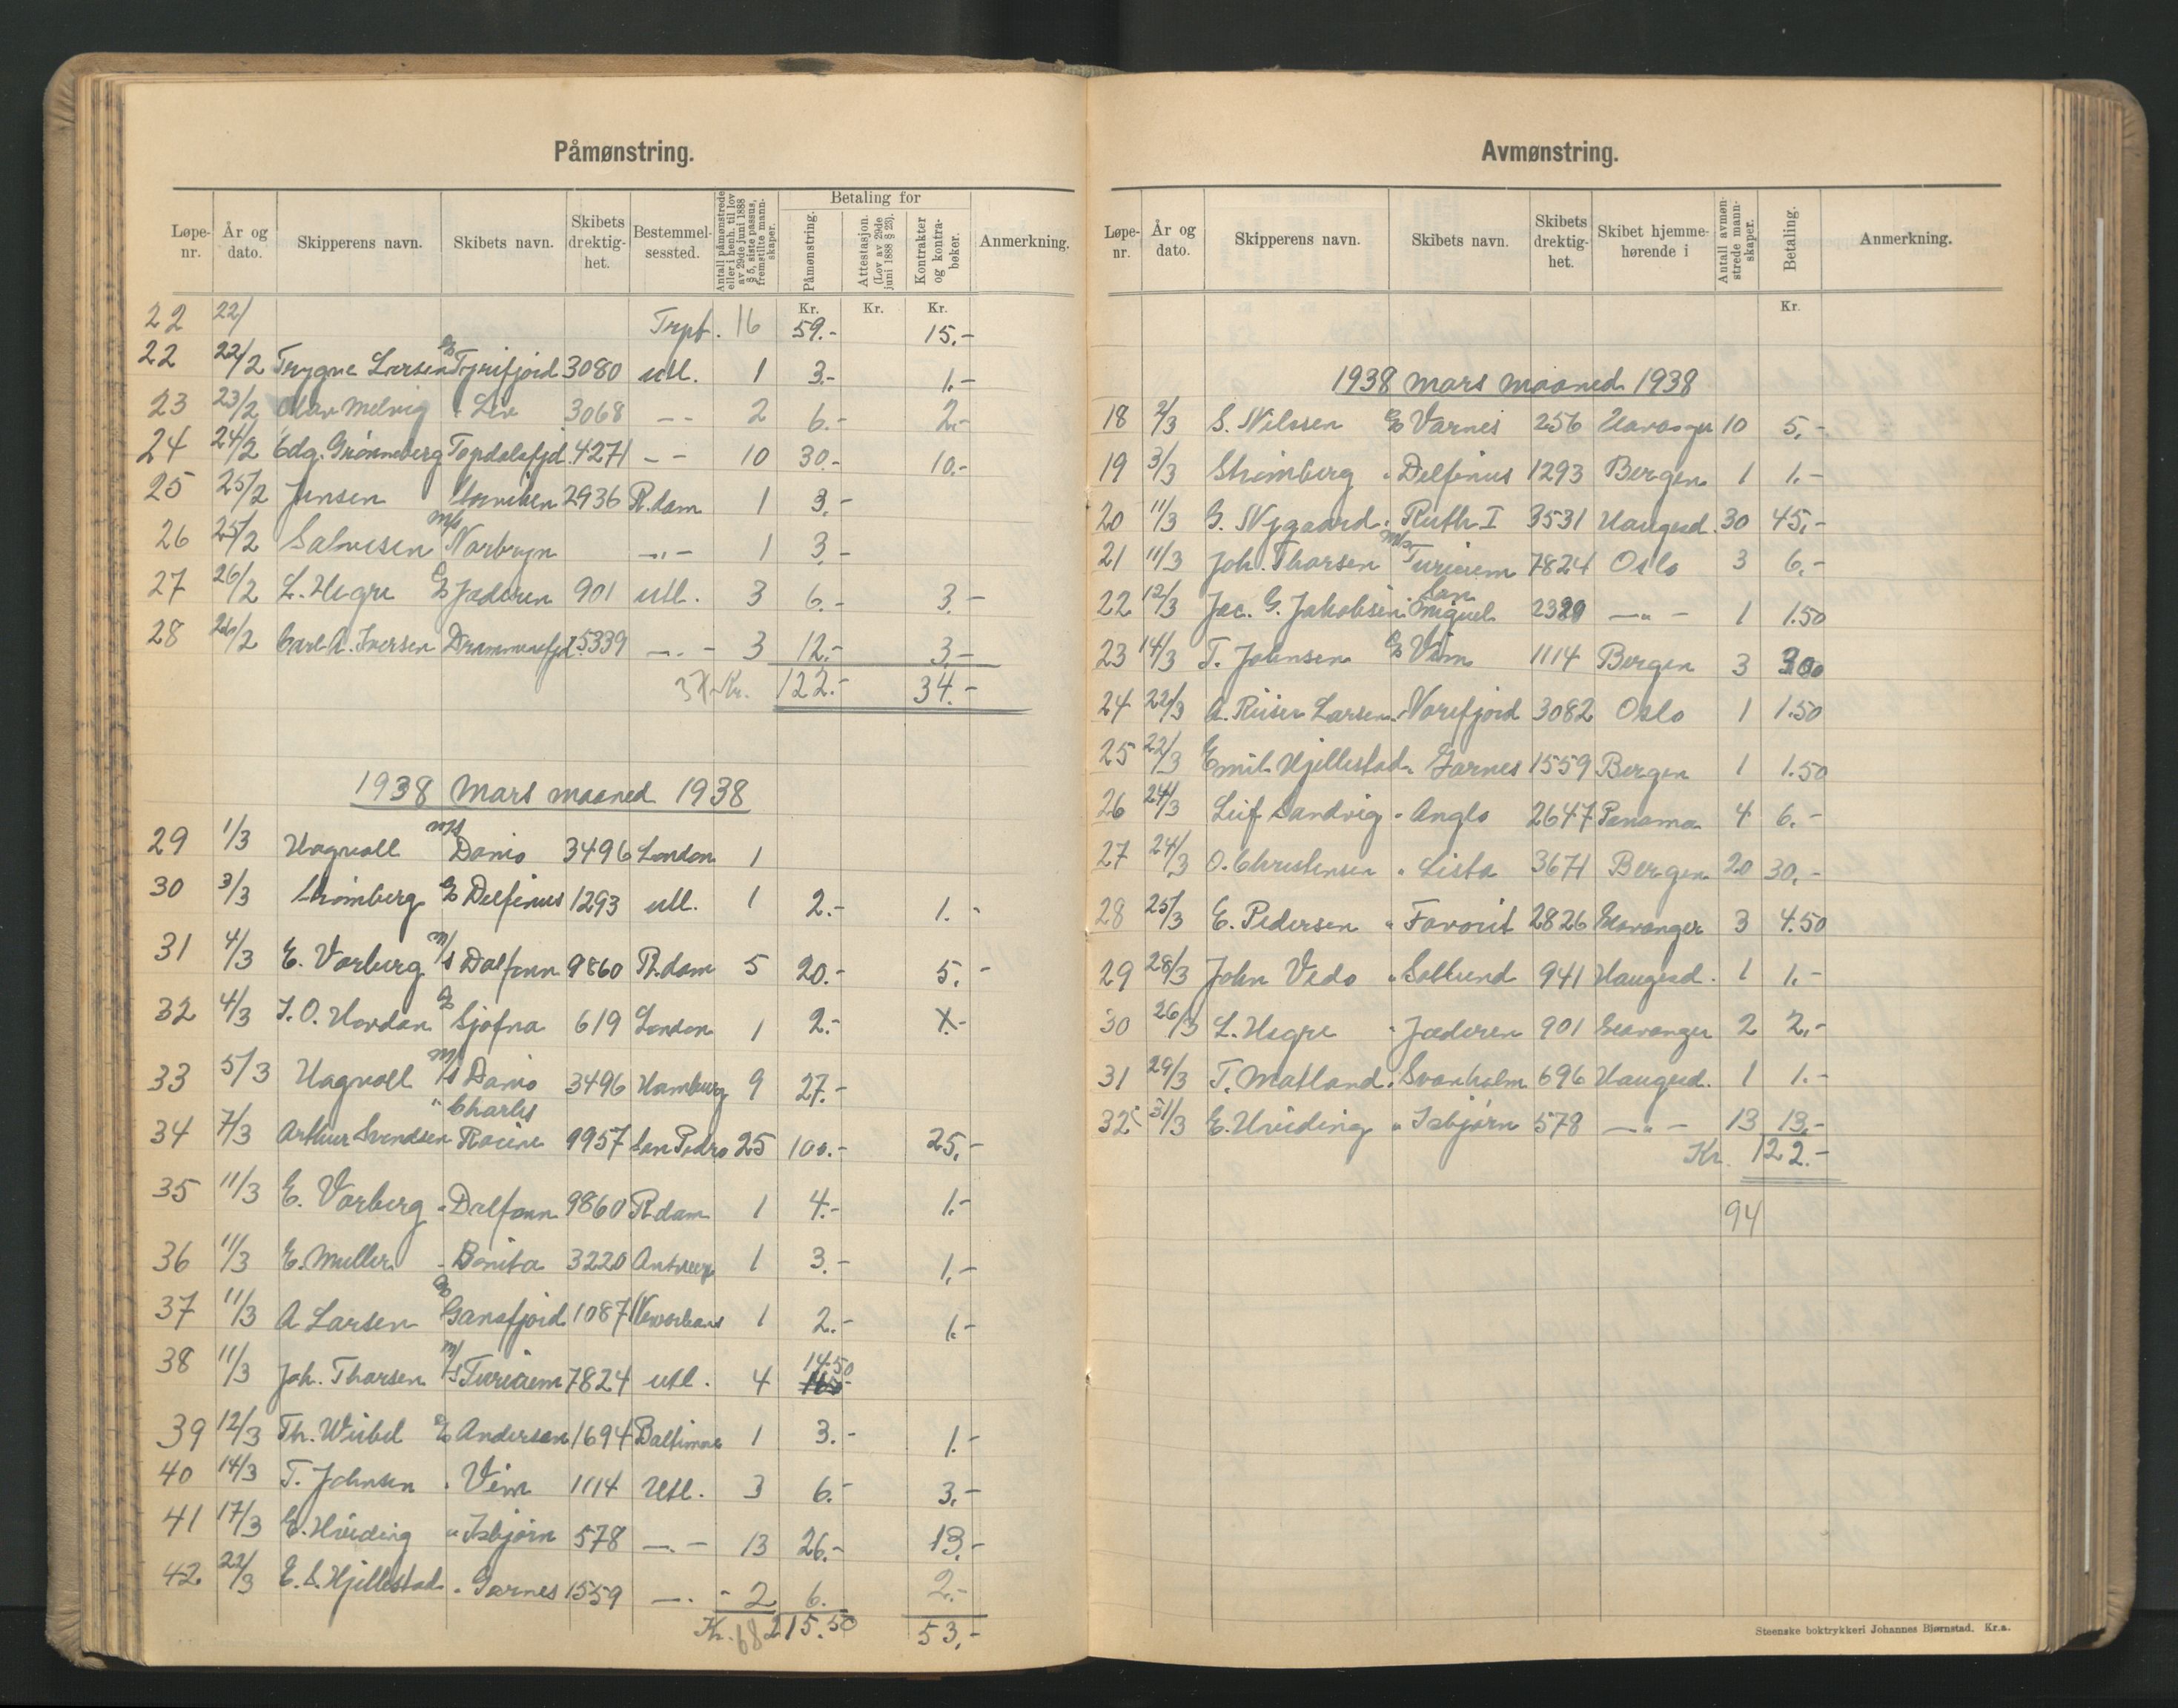 Påmønstring.
Løpe-nr. År og dato. Skipperens navn. Skibets navn. Skibets drektig-het. Bestemmel-sessted. Antall påmønstrede eller i henh. til lov av 29de juni 1888 § 5, siste passus, fremstilte mann-skaper. Betaling for Påmønstring. Attestasjon. (Lov av 29de juni 1888 § 23). Kontrakter og kontra-bøker. Anmerkning.
Kr. Kr. Kr.
22 22/ Trpt. 16 59.- 15.-
22 22/2 Trygve Larsen Tyrifjord 3080 utl. 1 3.- 1.-
23 23/2 Olav Melvig " Liv 3068 - - 2 6.- 2.-
24 24/2 Edg. Grønneberg Topdalsfjd. 4271 - - 10 30.- 10.-
25 25/2 Jensen 2936 R.dam 1 3.-
26 25/2 Salvesen M/s Norbryn -"- 1 3.-
27 26/2 L. Hegre Jæderen 901 utl. 3 6.- 3.-
28 26/2 Carl A. Iversen Drammensfjd. 5339 -"- 3 12.- 3.-
Kr. 122.- 34.-
1938 Mars maaned 1938
29 1/3 Hagvall M/s Danio 3496 London 1
30 3/3 Strømberg Delfinus 1293 utl. 1 2.- 1.-
31 4/3 E. Varberg M/s Dalfonn 9860 R.dam 5 20.- 5.-
32 4/3 I. O. Hordan Sjofna 619 London 1 2.-
33 5/3 Hagvall M/s Danio 3496 Hamburg 9 27.-
34 7/3 Arthur Svendsen " Charles Racine 9957 San Pedro 25 100.- 25.-
35 11/3 E. Varberg " Dalfonn 9860 R.dam 1 4.- 1.-
36 11/3 E. Muller " Bonita 3220 Antwerp 1 3.- 1.-
37 11/3 A Larsen Gansfjord 1087 Neworleans 1 2.- 1.-
38 11/3 Joh. Thorsen M/s Turicum 7824 utl. 4 14.50
39 12/3 Th. Wiebel Anderson 1694 Baltimore 1 3.- 1.-
40 14/3 T. Johnsen " Vim 1114 Utl. 3 6.- 3.-
41 17/3 E. Hviding " Isbjørn 578 -"- 13 26.- 13.-
42 22/3 E. S. Hjellestad " Garnes 1559 -"- 2 6. 2.-
Kr. 68 215.50 53.-
Avmønstring.
Løpe-nr. År og dato. Skipperens navn. Skibets navn. Skibets drektig-het. Skibet hjemme-hørende i Antall avmøn-strede mann-skaper. Betaling. Anmerkning.
Kr.
1938 mars maaned 1938
18 2/3 S. Nilssen Varnes 256 10 5.-
19 3/3 Strømberg " Delfinus 1293 Bergen 1 1.-
20 11/3 G. Nygaard " Ruth I 3531 Haugesd. 30 45.-
21 11/3 Joh. Thorsen M/s Turicum 7824 Oslo 3 6.-
22 12/3 Jac. G. Jakobsen " San Miguel 2320 -"- 1 1.50
23 14/3 T. Johnsen Vim 1114 Bergen 3 3.00
24 22/3 A. Riiser Larsen " Norefjord 3082 Oslo 1 1.50
25 22/3 Emil Hjellestad " Garnes 1559 Bergen 1 1.50
26 24/3 Leif Sandvig " Anglo 2647 Panama 4 6.-
27 24/3 O. Christensen " Lista 3671 Bergen 20 30.-
28 25/3 E. Pedersen " Favorit 2826 Stavanger 3 4.50
29 28/3 John Vedo " Solsund 941 Haugesd. 1 1.-
30 26/3 L. Hegre " Jæderen 901 Stavanger 2 2.-
31 29/3 T. Matland " Svanholm 696 Haugesd. 1 1.-
32 31/3 E. Hviding " Isbjørn 578 -"- 13 13.-
Kr. 122.-
94
Steenske boktrykkeri Johannes Bjørnstad. Kr.a.